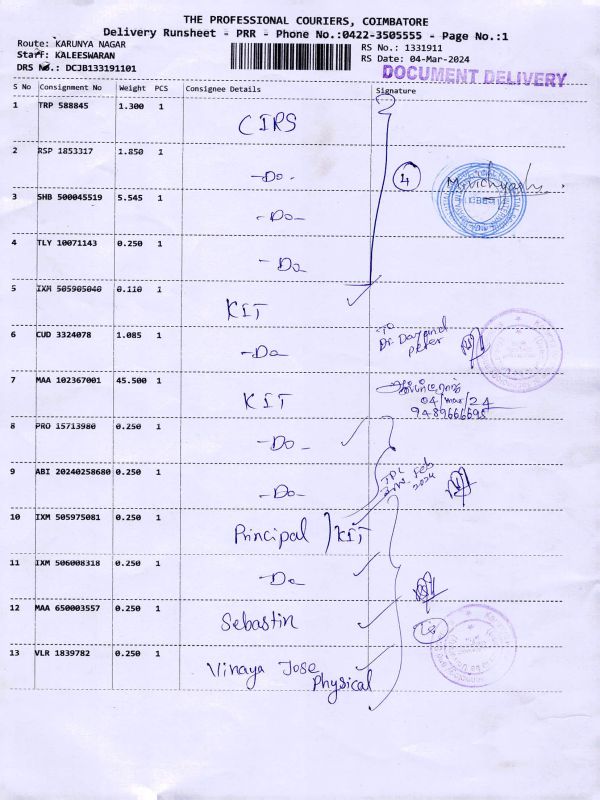 THE PROFESSIONAL COURIERS, COIMBATORE
Delivery Runsheet - PRR - Phone No.:0422-3505555 - Page No.:1
Route: KARUNYA NAGAR
RS No.: 1331911
Staff: KALEESWARAN
RS Date: 04-Mar-2024
DRS No.: DCJB133191101
DOCUMENT DELIVERY
S No Consignment No Weight PCS Consignee Details Signature
1 TRP 588845 1.300 1 CIRS
2 RSP 1853317 1.850 1 -Do- 4
3 SHB 500045519 5.545 1 -Do-
4 TLY 10071143 0.250 1 -Do
5 IXM 505905040 0.110 1 KIT
6 CUD 3324078 1.085 1 -Do
To
Dr. Dayand
Peter
7 MAA 102367001 45.500 1 KIT
04/mar/24
9489666695
8 PRO 15713980 0.250 1 -Do-
9 ABI 20240258680 0.250 1 -Do-
Feb
2024
10 IXM 505975081 0.250 1 Principal KIT
11 IXM 506008318 0.250 1 -Do
12 MAA 650003557 0.250 1 Sebastin
13 VLR 1839782 0.250 1 Vinaya Jose
Physical